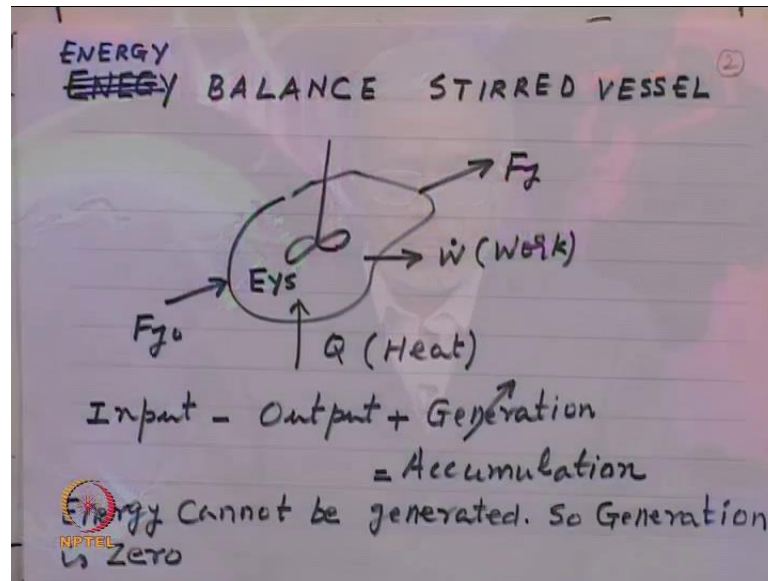 ENERGY
ENEGY BALANCE STIRRED VESSEL
2
Fj
Ẇ (Work)
Eys
Fj0
Q (Heat)
Input - Output + Generation
= Accumulation
Energy Cannot be generated. So Generation
is Zero
NPTEL